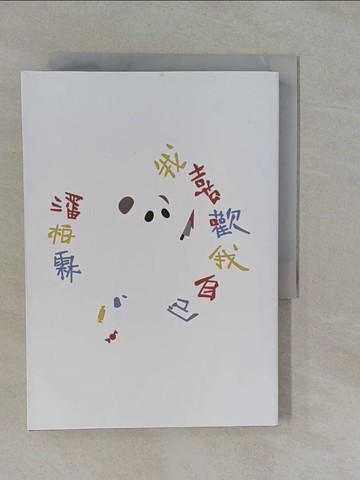 我喜歡我自己
潘柏霖